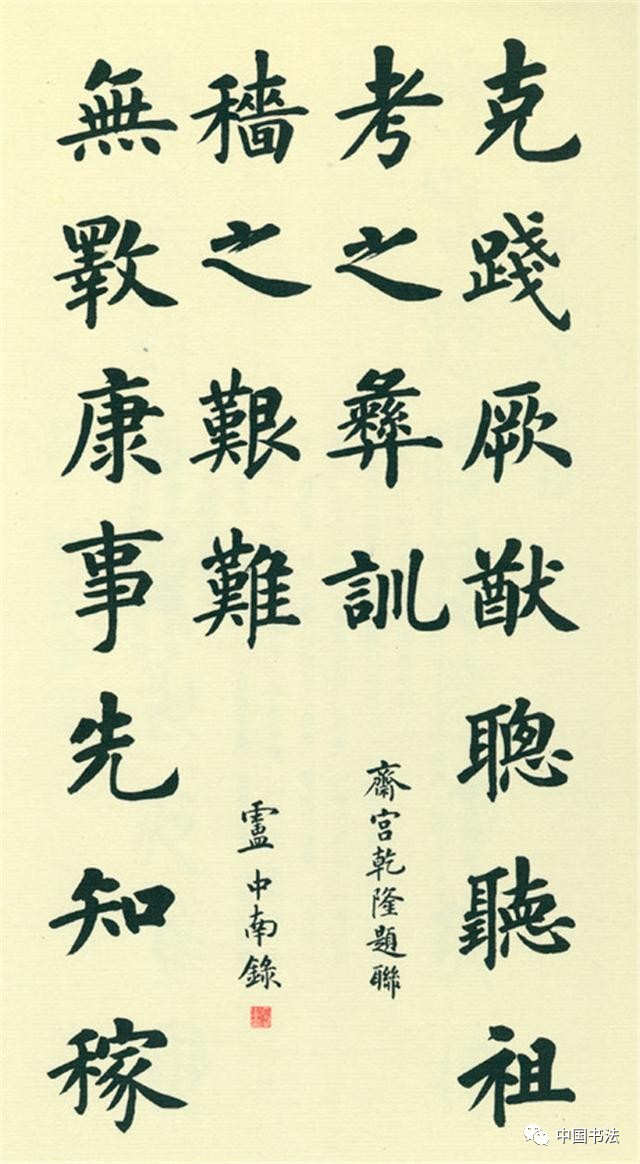 克踐厥猷聰聽祖
考之彝訓
齋宮乾隆題聯
無斁康事先知稼
穡之艱難
盧中南錄
中国书法